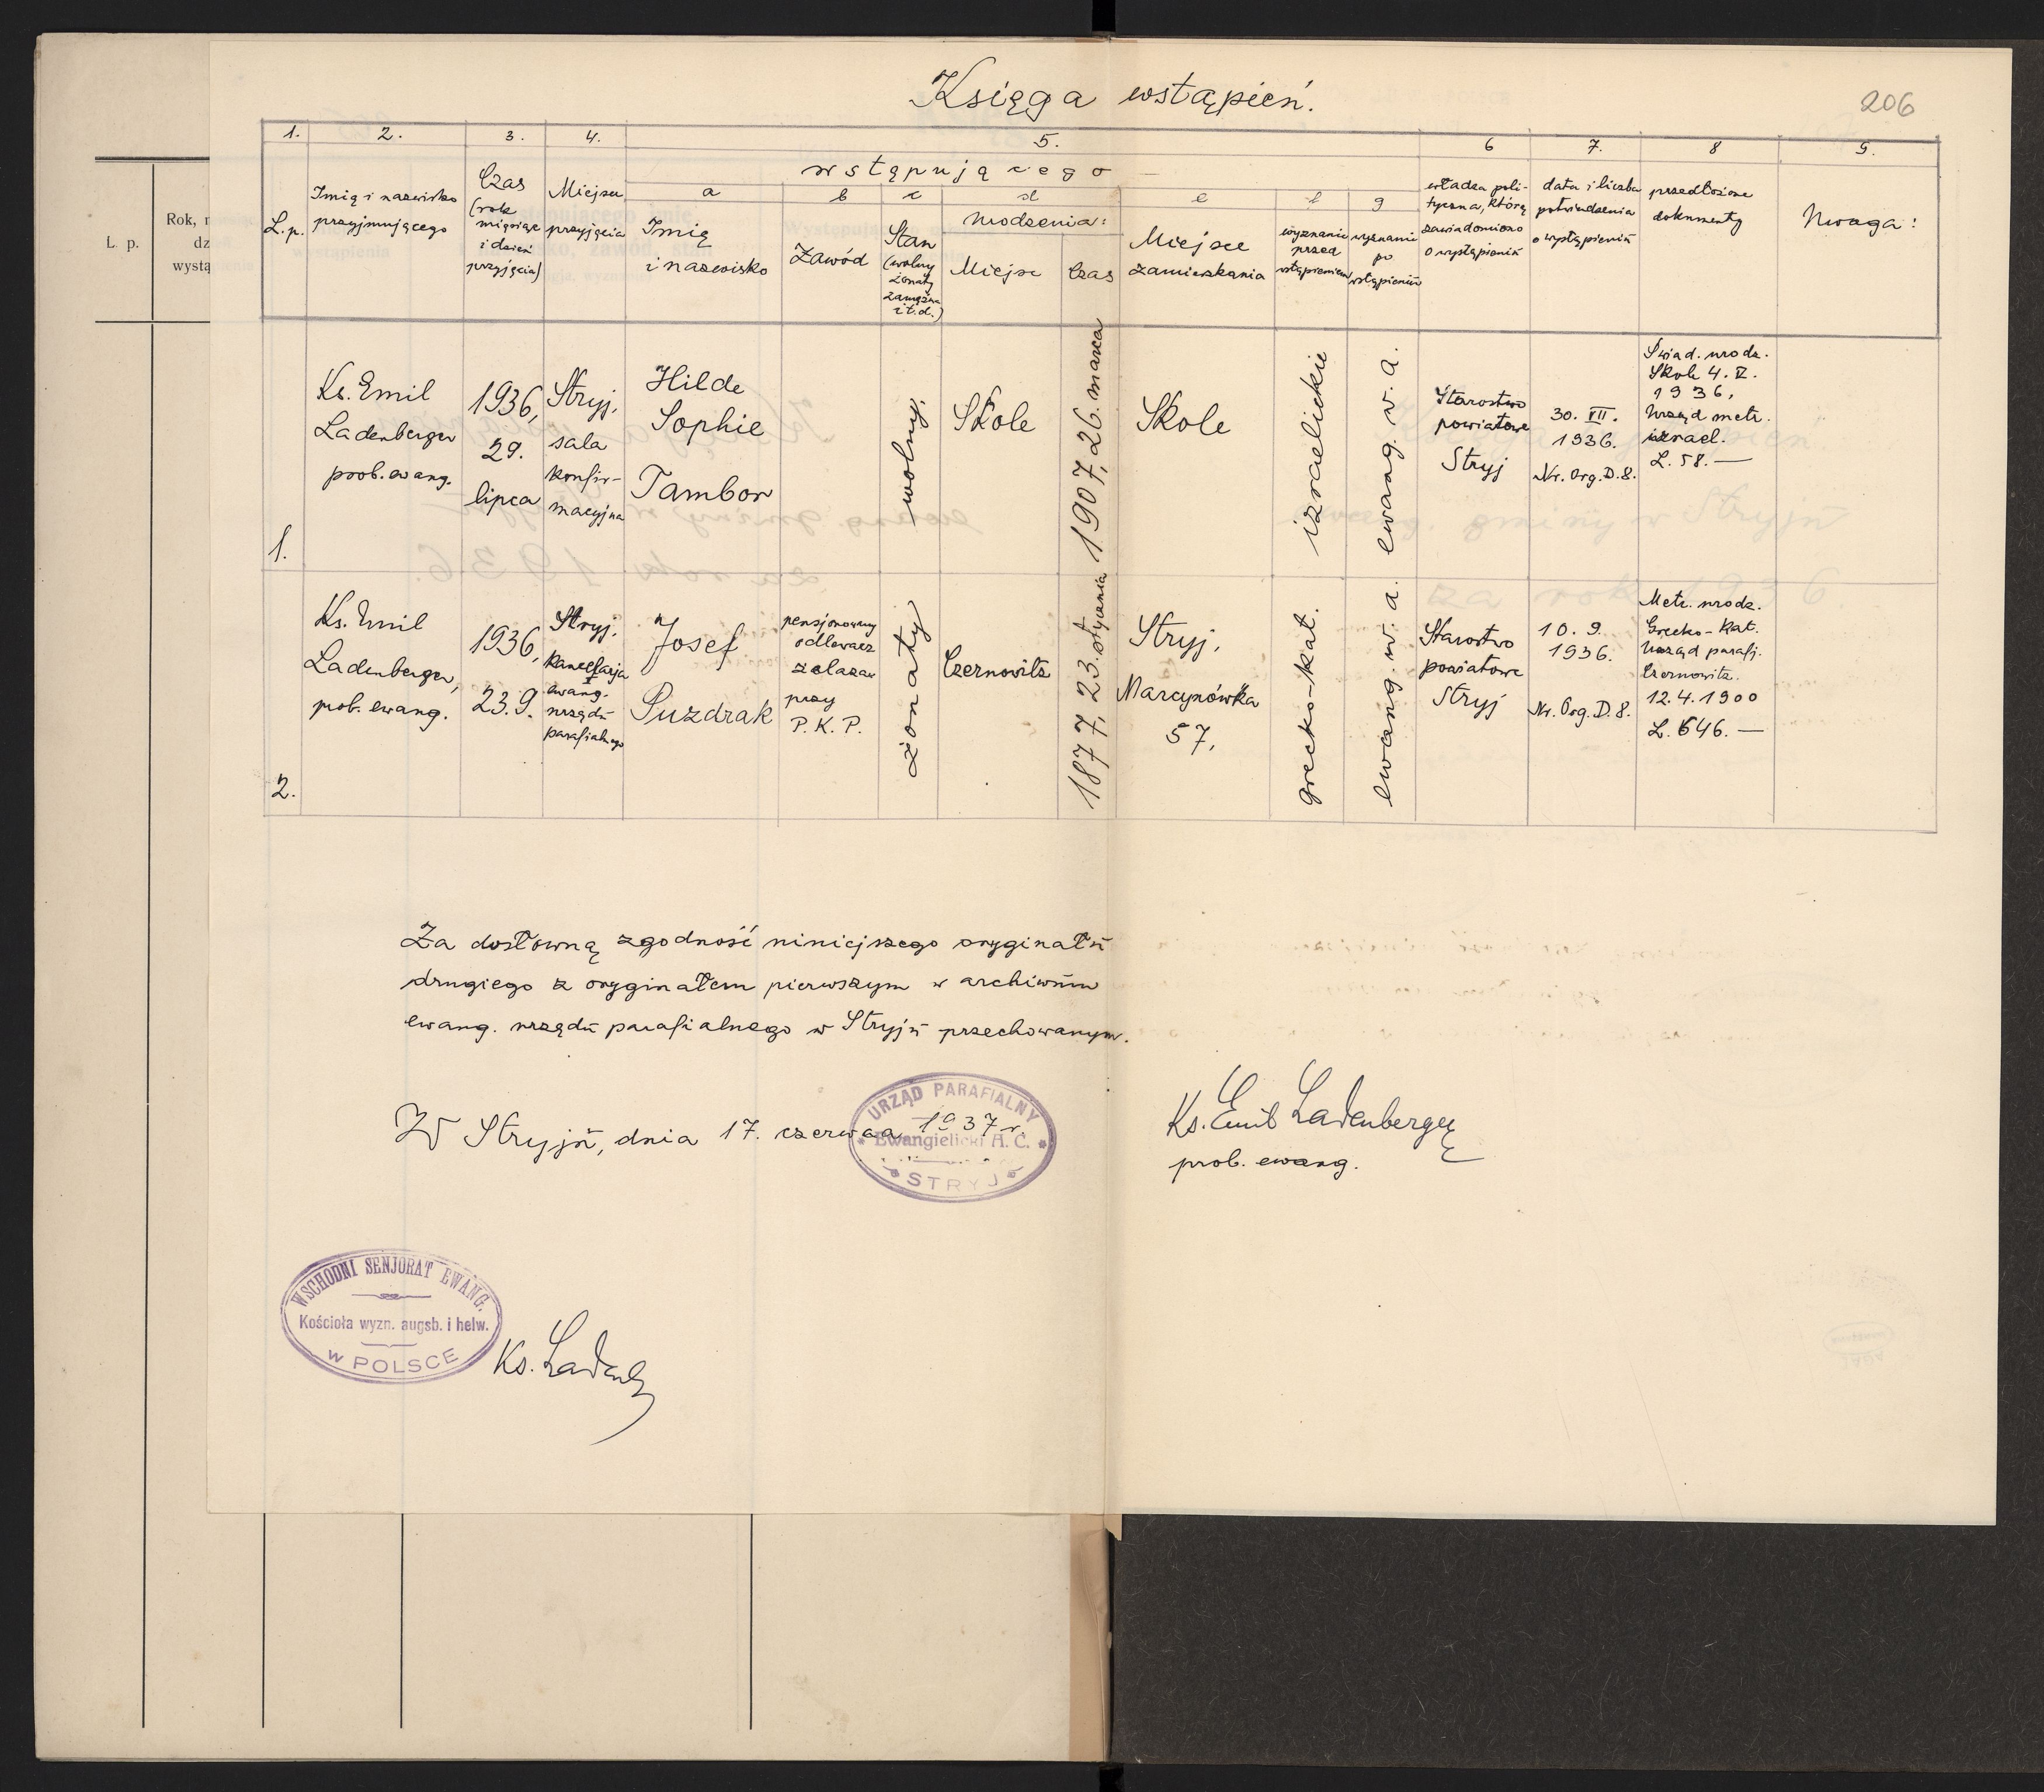 Księga wstąpień.
206
1.
2.
3.
4.
5.
6
7.
8
9.
wstąpującego
L. p.
Rok, m
dz
wystą
L.p.
Imię i nazwisko
przyjmującego
Czas
(rok
miesiąc
i dzień
przyjęcia)
Miejsce
przyjęcia
a
Imię
i nazwisko
b
Zawód
c
Stan
(wolny
żonaty
zamężna
i t. d.)
d
urodzenia:
Miejsce
Czas
e
Miejsce
zamieszkania
f
wyznanie
przed
wstąpieniem
g
wyznanie
po
wstąpieniu
władza poli-
tyczna, którą
zawiadomiono
o wystąpieniu
data i liczba
potwierdzenia
o wystąpieniu
przedłożone
dokumenty
Uwaga:
1.
Ks. Emil
Ladenberger
prob. ewang.
1936,
29.
lipca
Stryj,
sala
konfir-
macyjna
Hilde
Sophie
Tambor
wolny.
Skole
1907, 26. marca
Skole
izraelickie
ewang. w. a.
Starostwo
powiatowe
Stryj
30. VII.
1936.
Nr. Org. D. 8.
Świad. urodz.
Skole 4. V.
1936,
Urząd metr.
izrael.
L. 58.—
2.
Ks. Emil
Ladenberger,
prob. ewang.
1936,
23.9.
Stryj,
kancelarja
ewang.
urzędu
parafialnego
Josef
Puzdrak
pensjonowany
odlewacz
żelaza
przy
P. K. P.
żonaty
Czernowitz
1877, 23. stycznia
Stryj,
Marcynówka
57,
grecko-kat.
ewang. w. a.
Starostwo
powiatowe
Stryj
10. 9.
1936.
Nr. Org. D. 8.
Metr. urodz.
Grecko-kat.
Urząd parafj.
Czernowitz.
12.4.1900
L. 646.—
Za dosłowną zgodność niniejszego oryginału
drugiego z oryginałem pierwszym w archiwum
ewang. urzędu parafialnego w Stryju przechowanym.
W Stryju, dnia 17. czerwca 1937 r.
URZĄD PARAFIALNY
Ewangielicki A. C.
STRYJ
Ks. Emil Ladenberger
prob. ewang.
WSCHODNI SENJORAT EWANG.
Kościoła wyzn. augsb. i helw.
w POLSCE
Ks. Ladenb